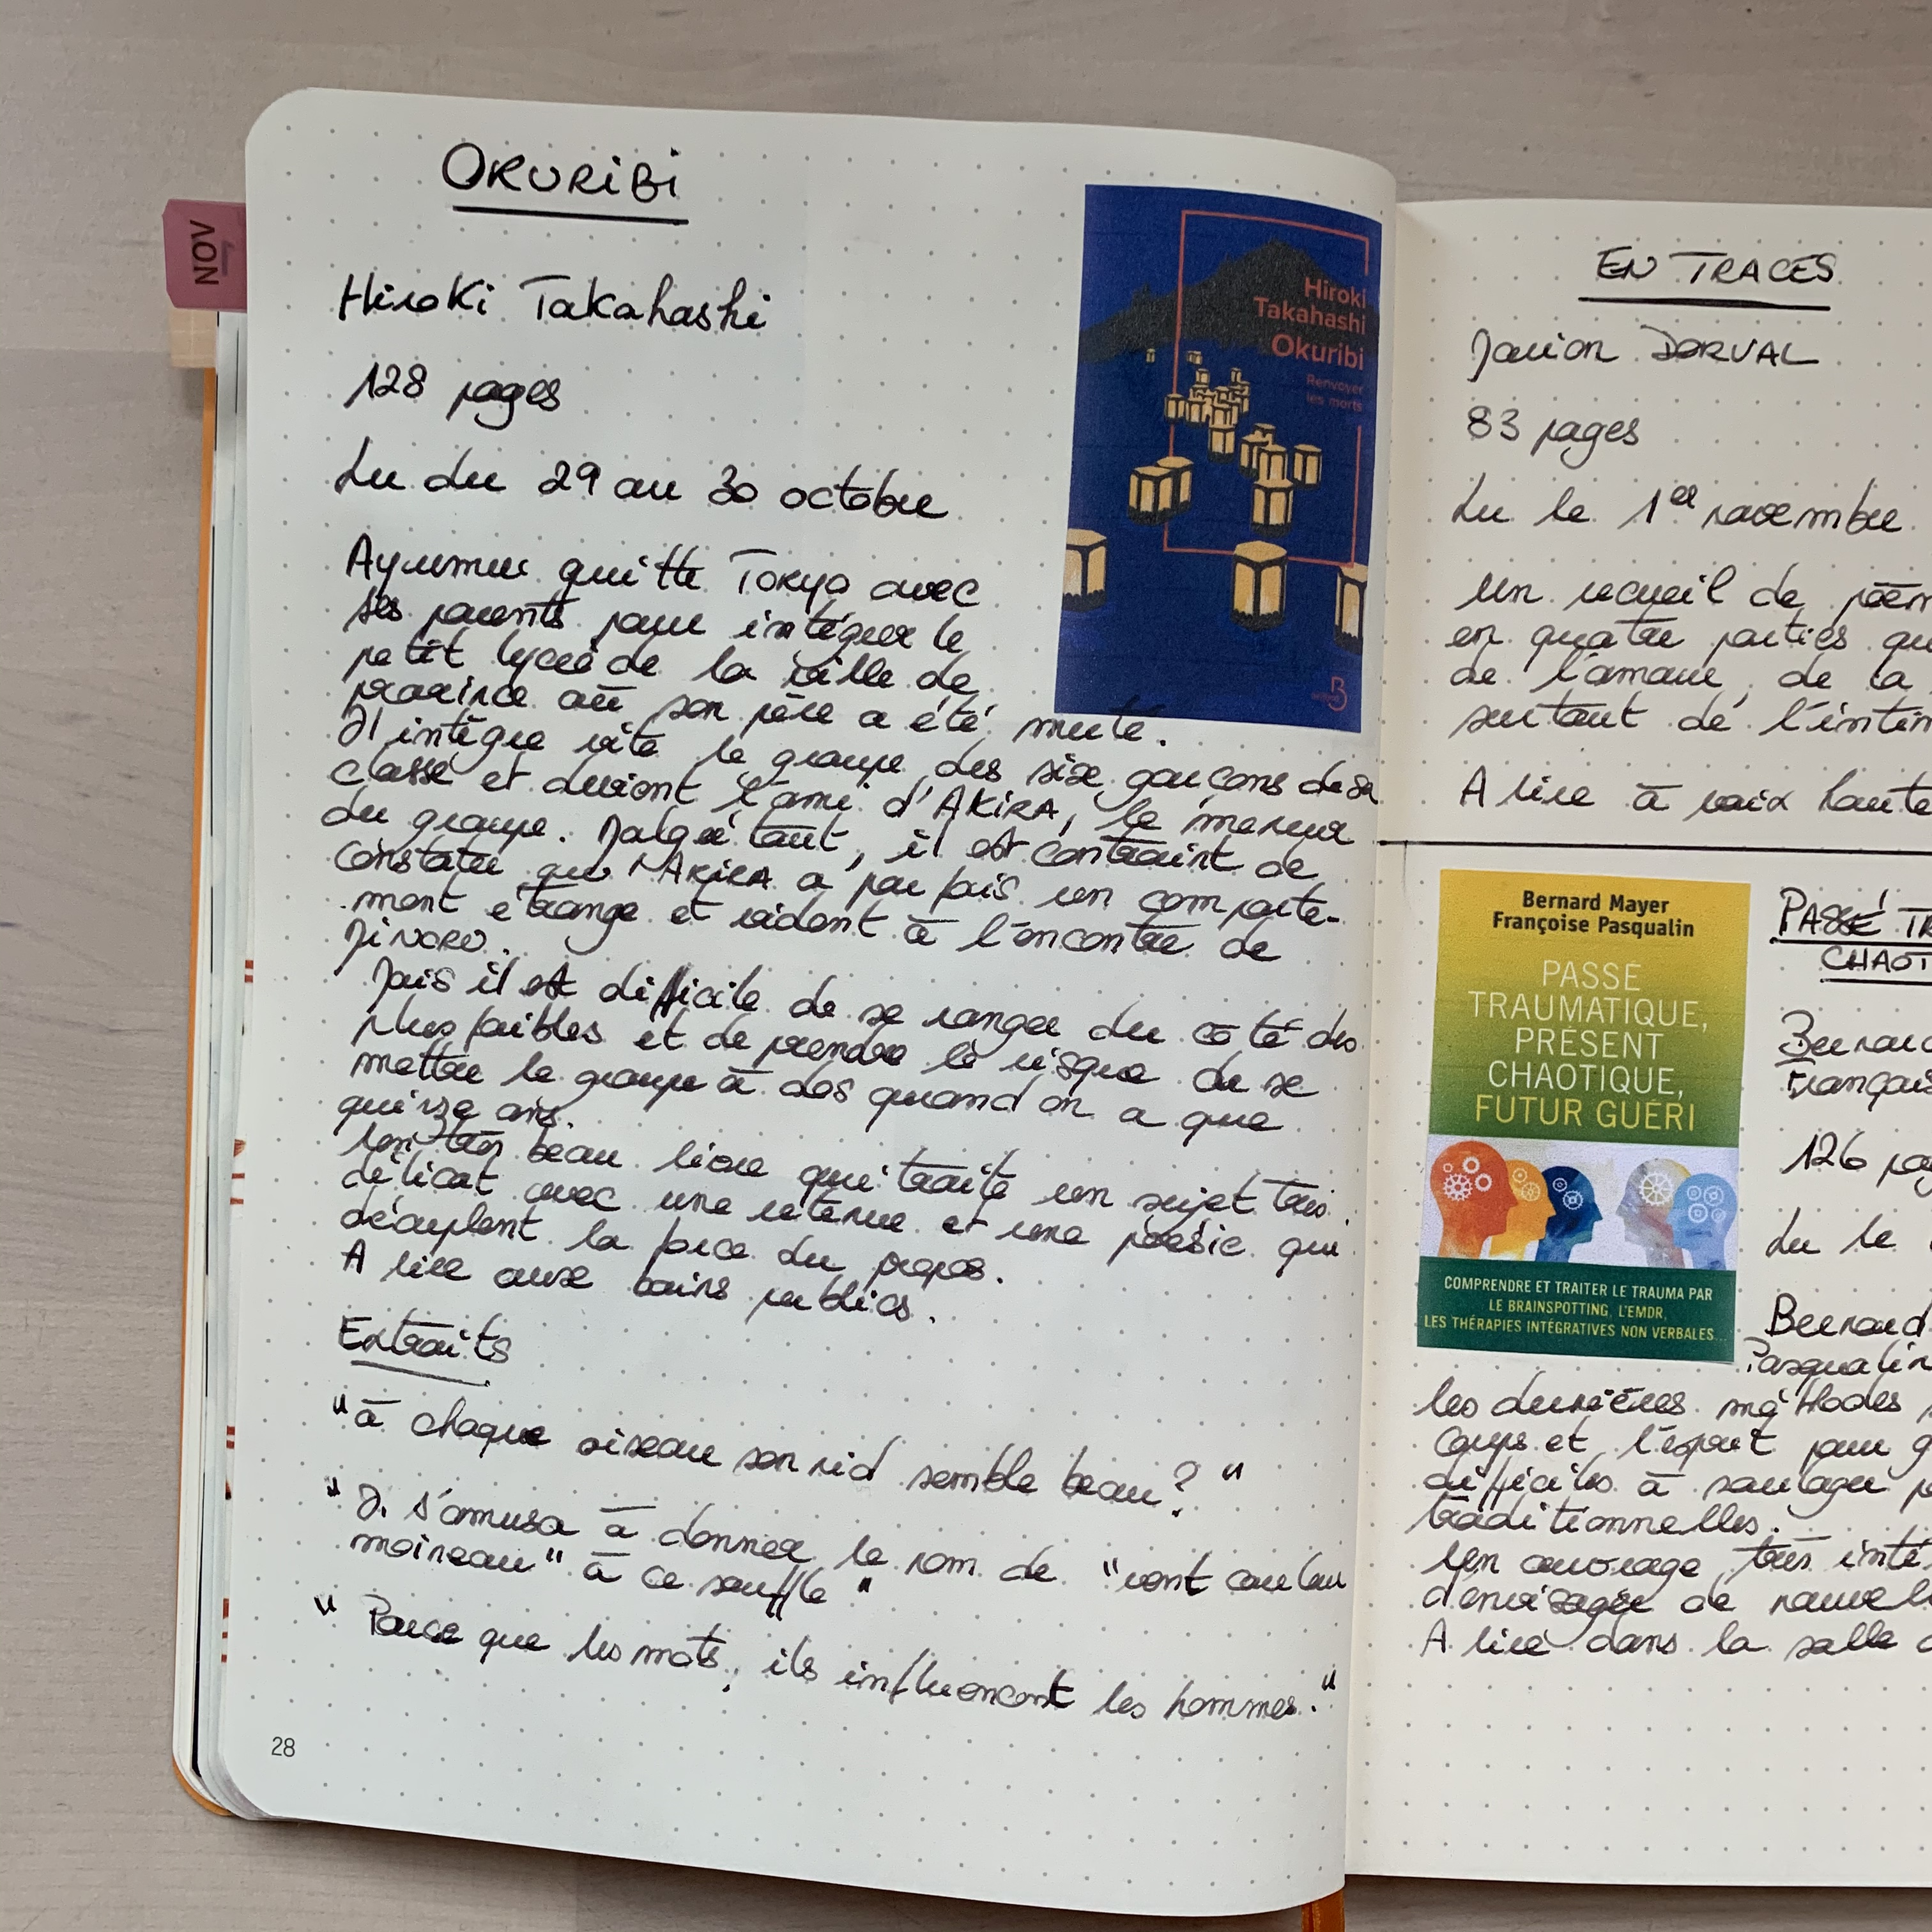 NOV
OKURiBi
Hiroki Takahashi
128 pages
Lu du 29 au 30 octobre
Hiroki
Takahashi
Okuribi
Renvoyer
les morts
Ayumu quitte Tokyo avec
ses parents pour intégrer le
petit lycée de la ville de
province où son père a été muté.
Il intègre vite le groupe des six garçons de sa
classe et devient l'ami d'AKiRA, le meneur
du groupe. Malgré tout, il est contraint de
constater que AKiRA a parfois un comporte-
ment étrange et violent à l'encontre de
MiNORU.
Mais il est difficile de se ranger du côté des
plus faibles et de prendre le risque de se
mettre le groupe à dos quand on a que
quinze ans.
Un très beau livre qui traite un sujet très
délicat avec une retenue et une poésie qui
décuplent la force du propos.
A lire aux bains publics.
Extraits
"à chaque oiseau son nid semble beau?"
"Il s'amusa à donner le nom de "vent couleur
moineau" à ce souffle"
"Parce que les mots, ils influencent les hommes."
28
EN TRACES
DORVAL
83 pages
Lu le 1er novembre
un recueil de poèm
en quatre parties qu
de l'amour, de la
surtout de l'intim
A lire à voix haute
Bernard Mayer
Françoise Pasqualin
PASSÉ
TRAUMATIQUE,
PRÉSENT
CHAOTIQUE,
FUTUR GUÉRI
COMPRENDRE ET TRAITER LE TRAUMA PAR
LE BRAINSPOTTING, L'EMDR,
LES THÉRAPIES INTÉGRATIVES NON VERBALES...
PASSÉ TR
CHAOT
Bernard
Françoise
126 pag
Lu le
Bernard
Pasqualin
les dernières méthodes p
corps et l'esprit pour g
difficiles à soulager p
traditionnelles.
Un ouvrage très inté
d'envisager de nouvel
A lire dans la salle d